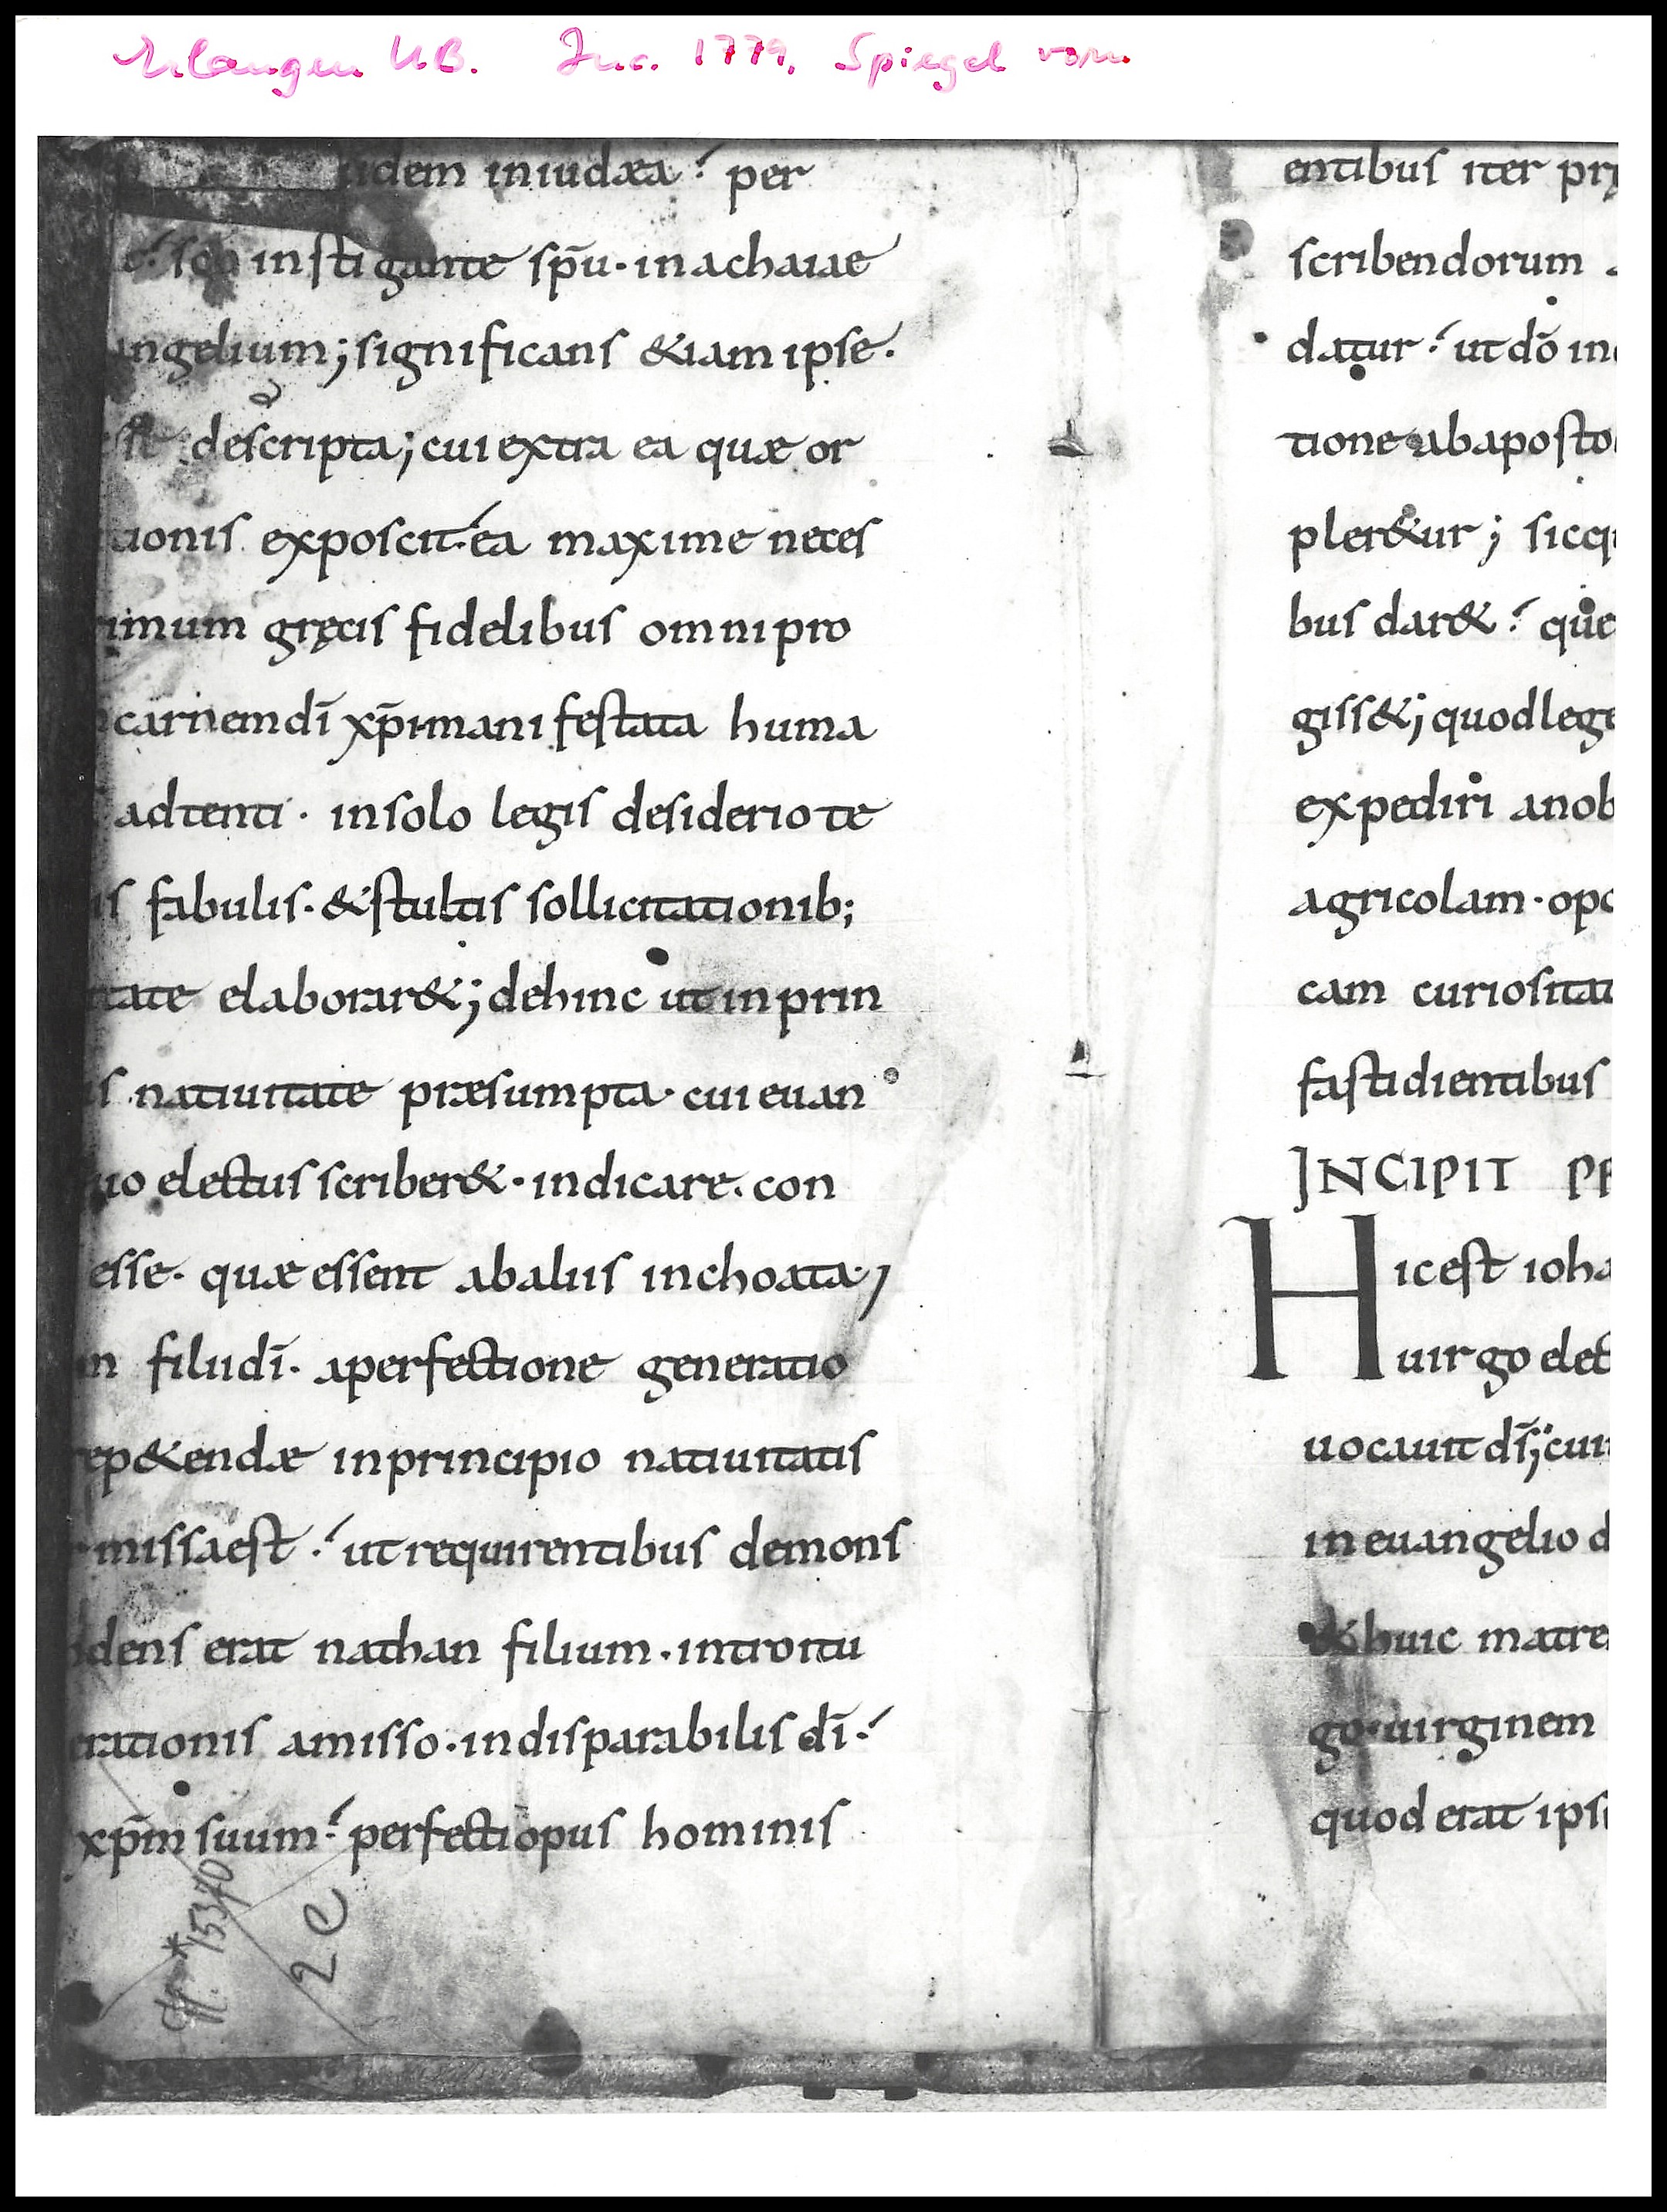 Erlangen UB. Inc. 1779. Spiegel vorn
idem iniudæa per
sco instigante sp̄u· inachaiae
angelium; significans &iam ipse·
descripta; cui extra ea quæ or
tionis exposcit· ea maxime neces
rimum gręcis fidelibus omni pro
carnem dī xp̄i manifestata huma
adtenti· insolo legis desiderio te
is fabulis· & stultis sollicitationib;
tate elaborar&; dehinc ut in prin
is natiuitate præsumpta· cui euan
uo electus scriber&· indicare· con
esse· quæ essent abaliis inchoata;
m filii dī· aperfectione generatio
rep&endæ inprincipio natiuitatis
missa est· ut requirentibus demons
idens erat nathan filium· introitu
erationis amisso· indisparabilis dī·
xp̄m suum· perfecti opus hominis
H.* 15370
2 e
entibus iter
scribendorum
datur· ut dō in
tione abaposto
pler&ur; sicq
bus dar&· que
giss&; quod lege
expediri anob
agricolam· opo
cam curiositat
fastidientibus
INCIPIT PR
Hic est ioha
uirgo elect
uocauit dī; cui
in euangelio d
& huic matre
go uirginem
quod erat ips